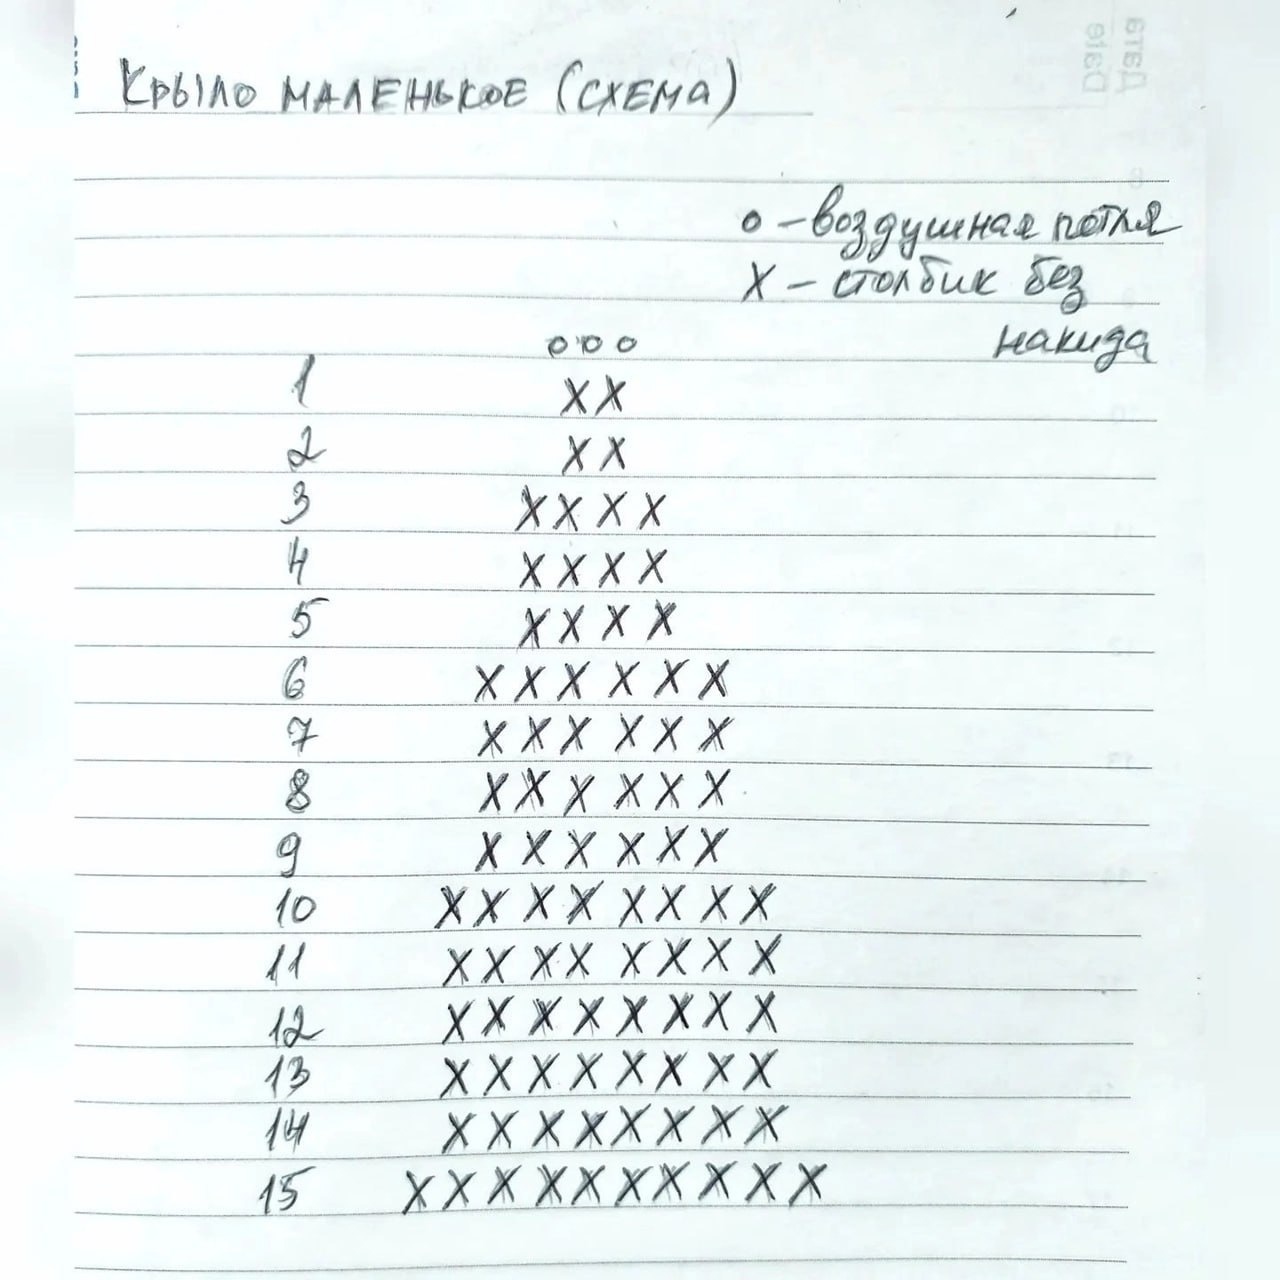 Крыло маленькое (схема)
o – воздушная петля
X – столбик без
накида
o o o
1 X X
2 X X
3 X X X X
4 X X X X
5 X X X X
6 X X X X X X
7 X X X X X X
8 X X X X X X
9 X X X X X X
10 X X X X X X X X
11 X X X X X X X X
12 X X X X X X X X
13 X X X X X X X X
14 X X X X X X X X
15 X X X X X X X X X X
Дата
Date